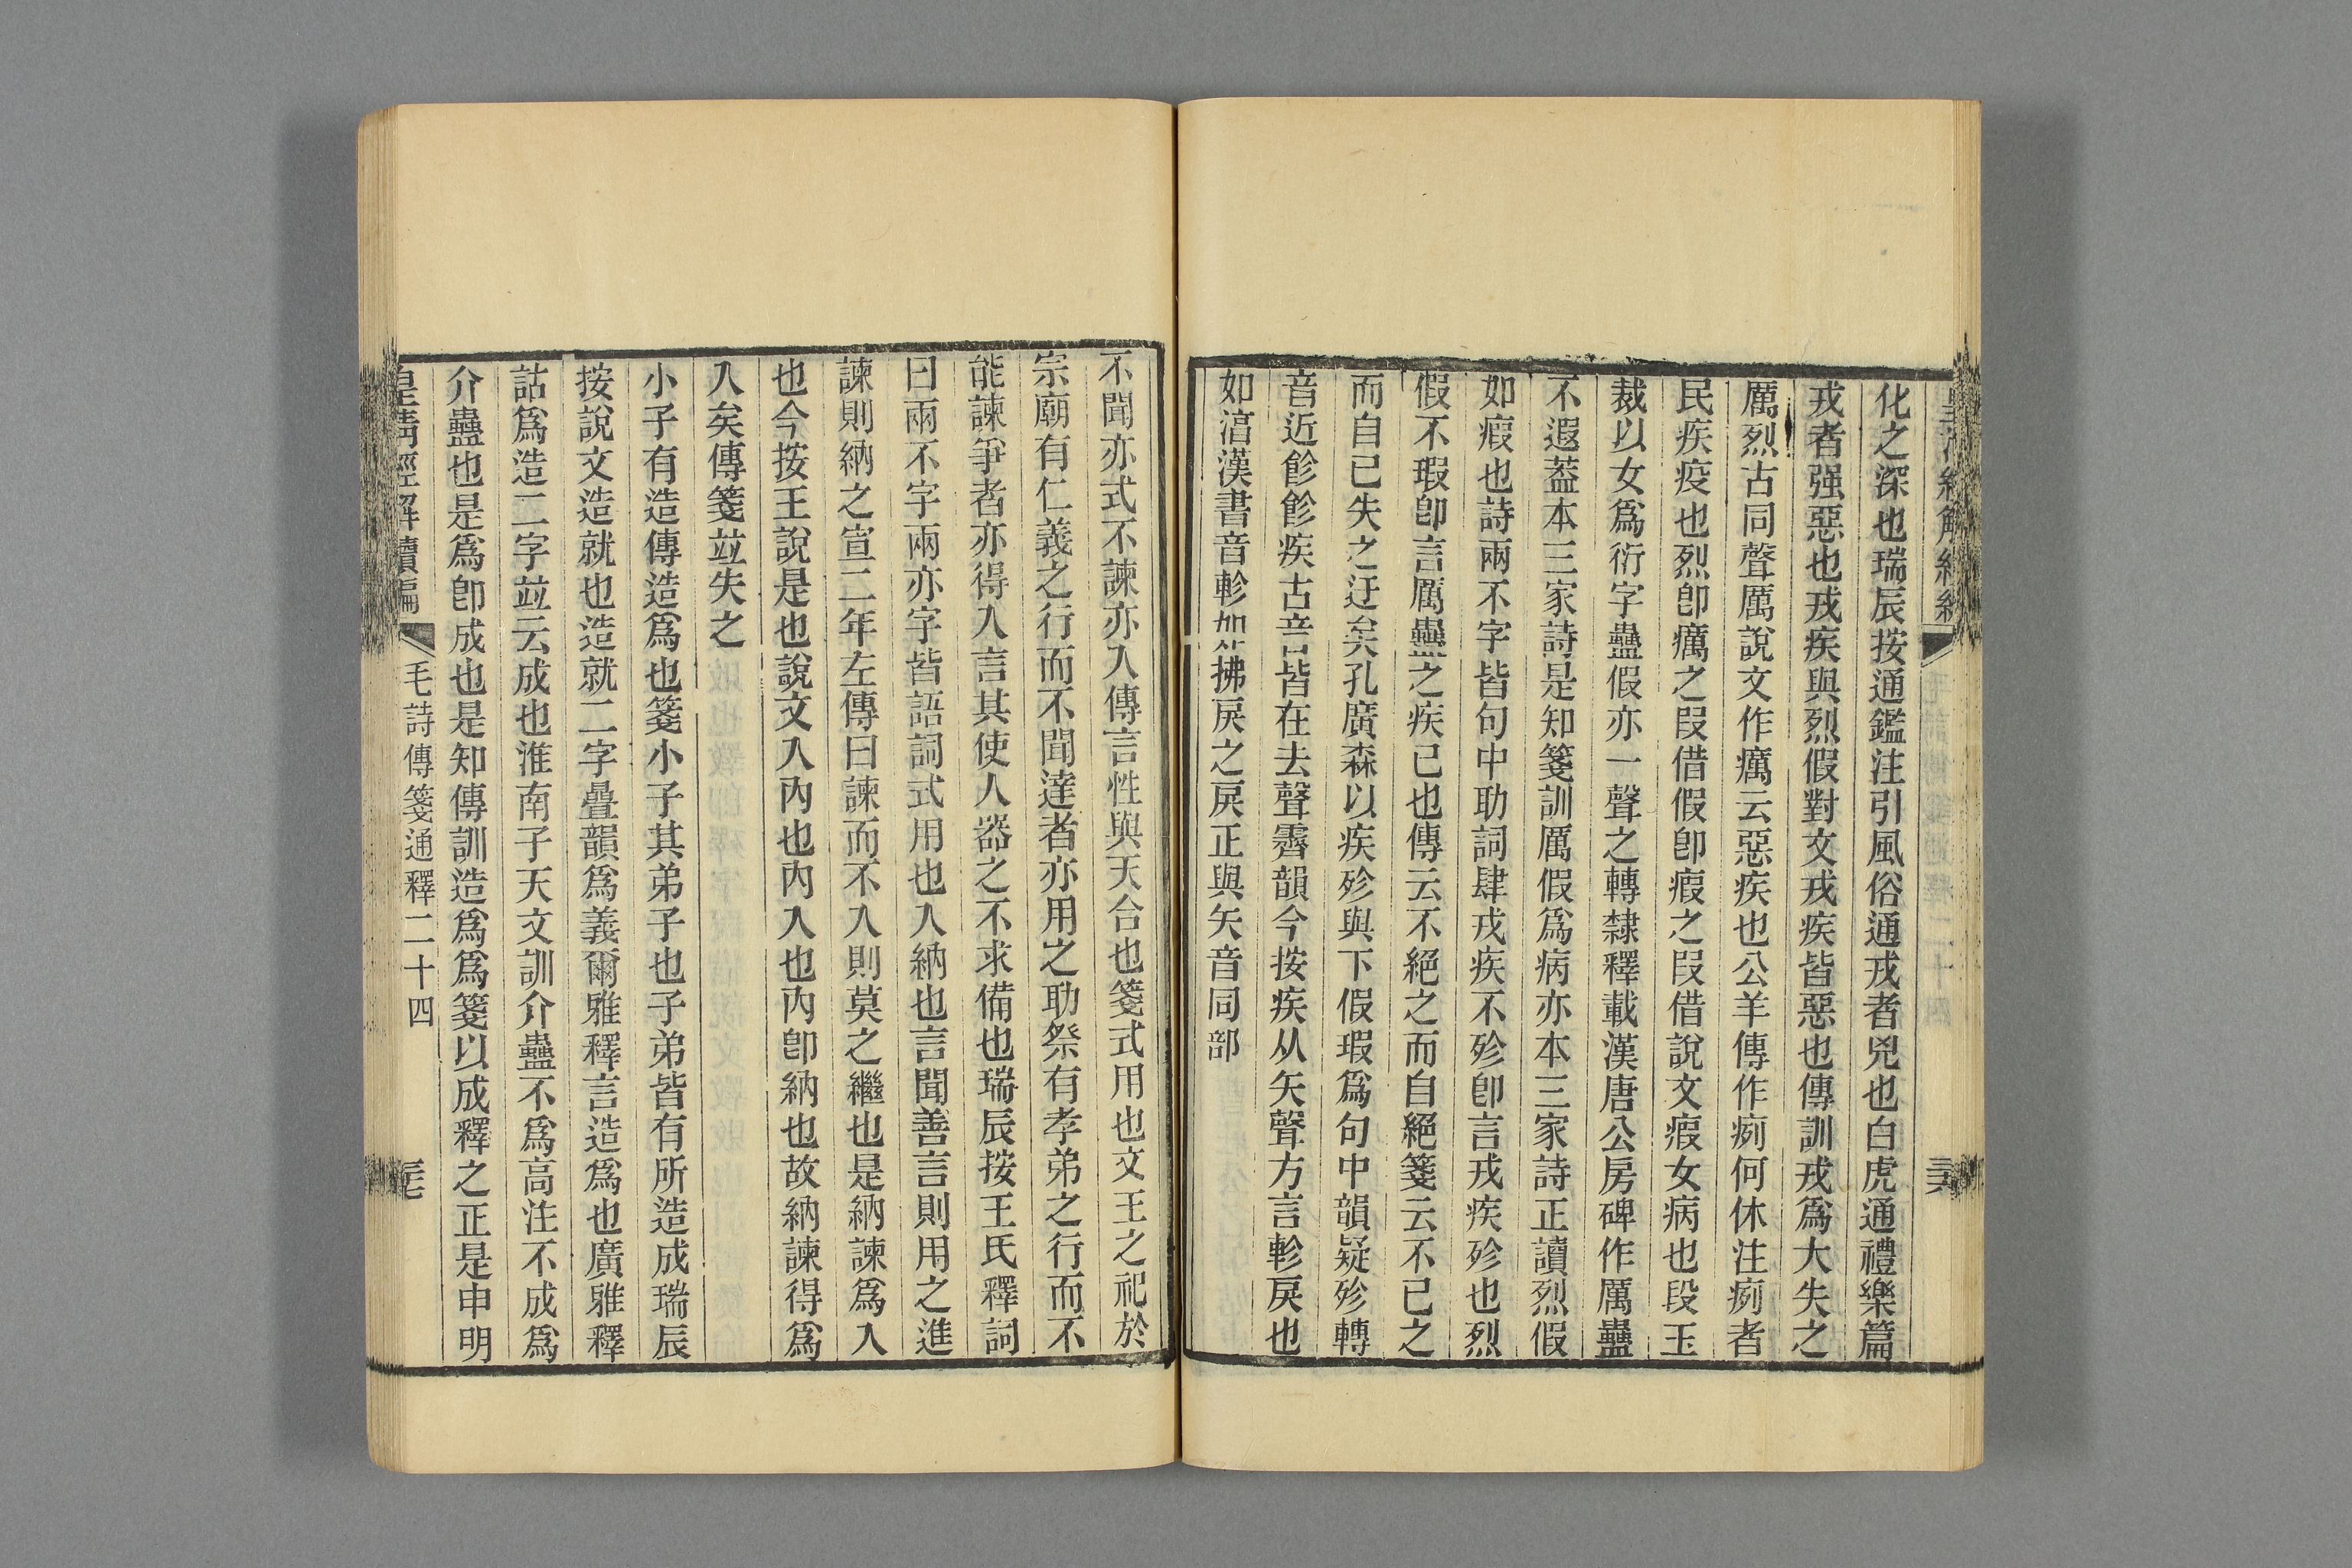 化之深也瑞辰按通鑑注引風俗通戎者兇也白虎通禮樂篇
戎者强惡也戎疾與烈假對文戎疾皆惡也傳訓戎爲大失之
厲烈古同聲厲說文作癘云惡疾也公羊傳作痾何休注痾者
民疾疫也烈卽癘之叚借假卽瘕之叚借說文瘕女病也段玉
裁以女爲衍字蠱假亦一聲之轉隸釋載漢唐公房碑作厲蠱
不遐葢本三家詩是知箋訓厲假爲病亦本三家詩正讀烈假
如瘕也詩兩不字皆句中助詞肆戎疾不殄卽言戎疾殄也烈
假不瑕卽言厲蠱之疾已也傳云不絕之而自絕箋云不已之
而自已失之迂矣孔廣森以疾殄與下假瑕爲句中韻疑殄轉
音近飻飻疾古音皆在去聲霽韻今按疾从矢聲方言軫戾也
如淯漢書音軫如拂戾之戾正與矢音同部
不聞亦式不諫亦入傳言性與天合也箋式用也文王之祀於
宗廟有仁義之行而不聞達者亦用之助祭有孝弟之行而不
能諫爭者亦得入言其使人器之不求備也瑞辰按王氏釋詞
曰兩不字兩亦字皆語詞式用也入納也言聞善言則用之進
諫則納之宣二年左傳曰諫而不入則莫之繼也是納諫爲入
也今按王說是也說文入內也內入也內卽納也故納諫得爲
入矣傳箋竝失之
小子有造傳造爲也箋小子其弟子也子弟皆有所造成瑞辰
按說文造就也造就二字疊韻爲義爾雅釋言造爲也廣雅釋
詁爲造二字竝云成也淮南子天文訓介蠱不爲高注不成爲
介蠱也是爲卽成也是知傳訓造爲爲箋以成釋之正是申明
皇清經解續編 毛詩傳箋通釋二十四